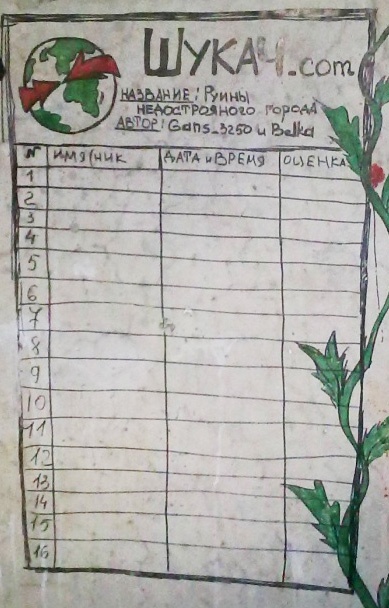 ШУКАЧ.com
НАЗВАНИЕ: Руины
НЕДОСТРОЯНОГО ГОРОДА
АВТОР: Gans_3250 и Belka
№ ИМЯ/НИК ДАТА и ВРЕМЯ ОЦЕНКА
1
2
3
4
5
6
7
8
9
10
11
12
13
14
15
16